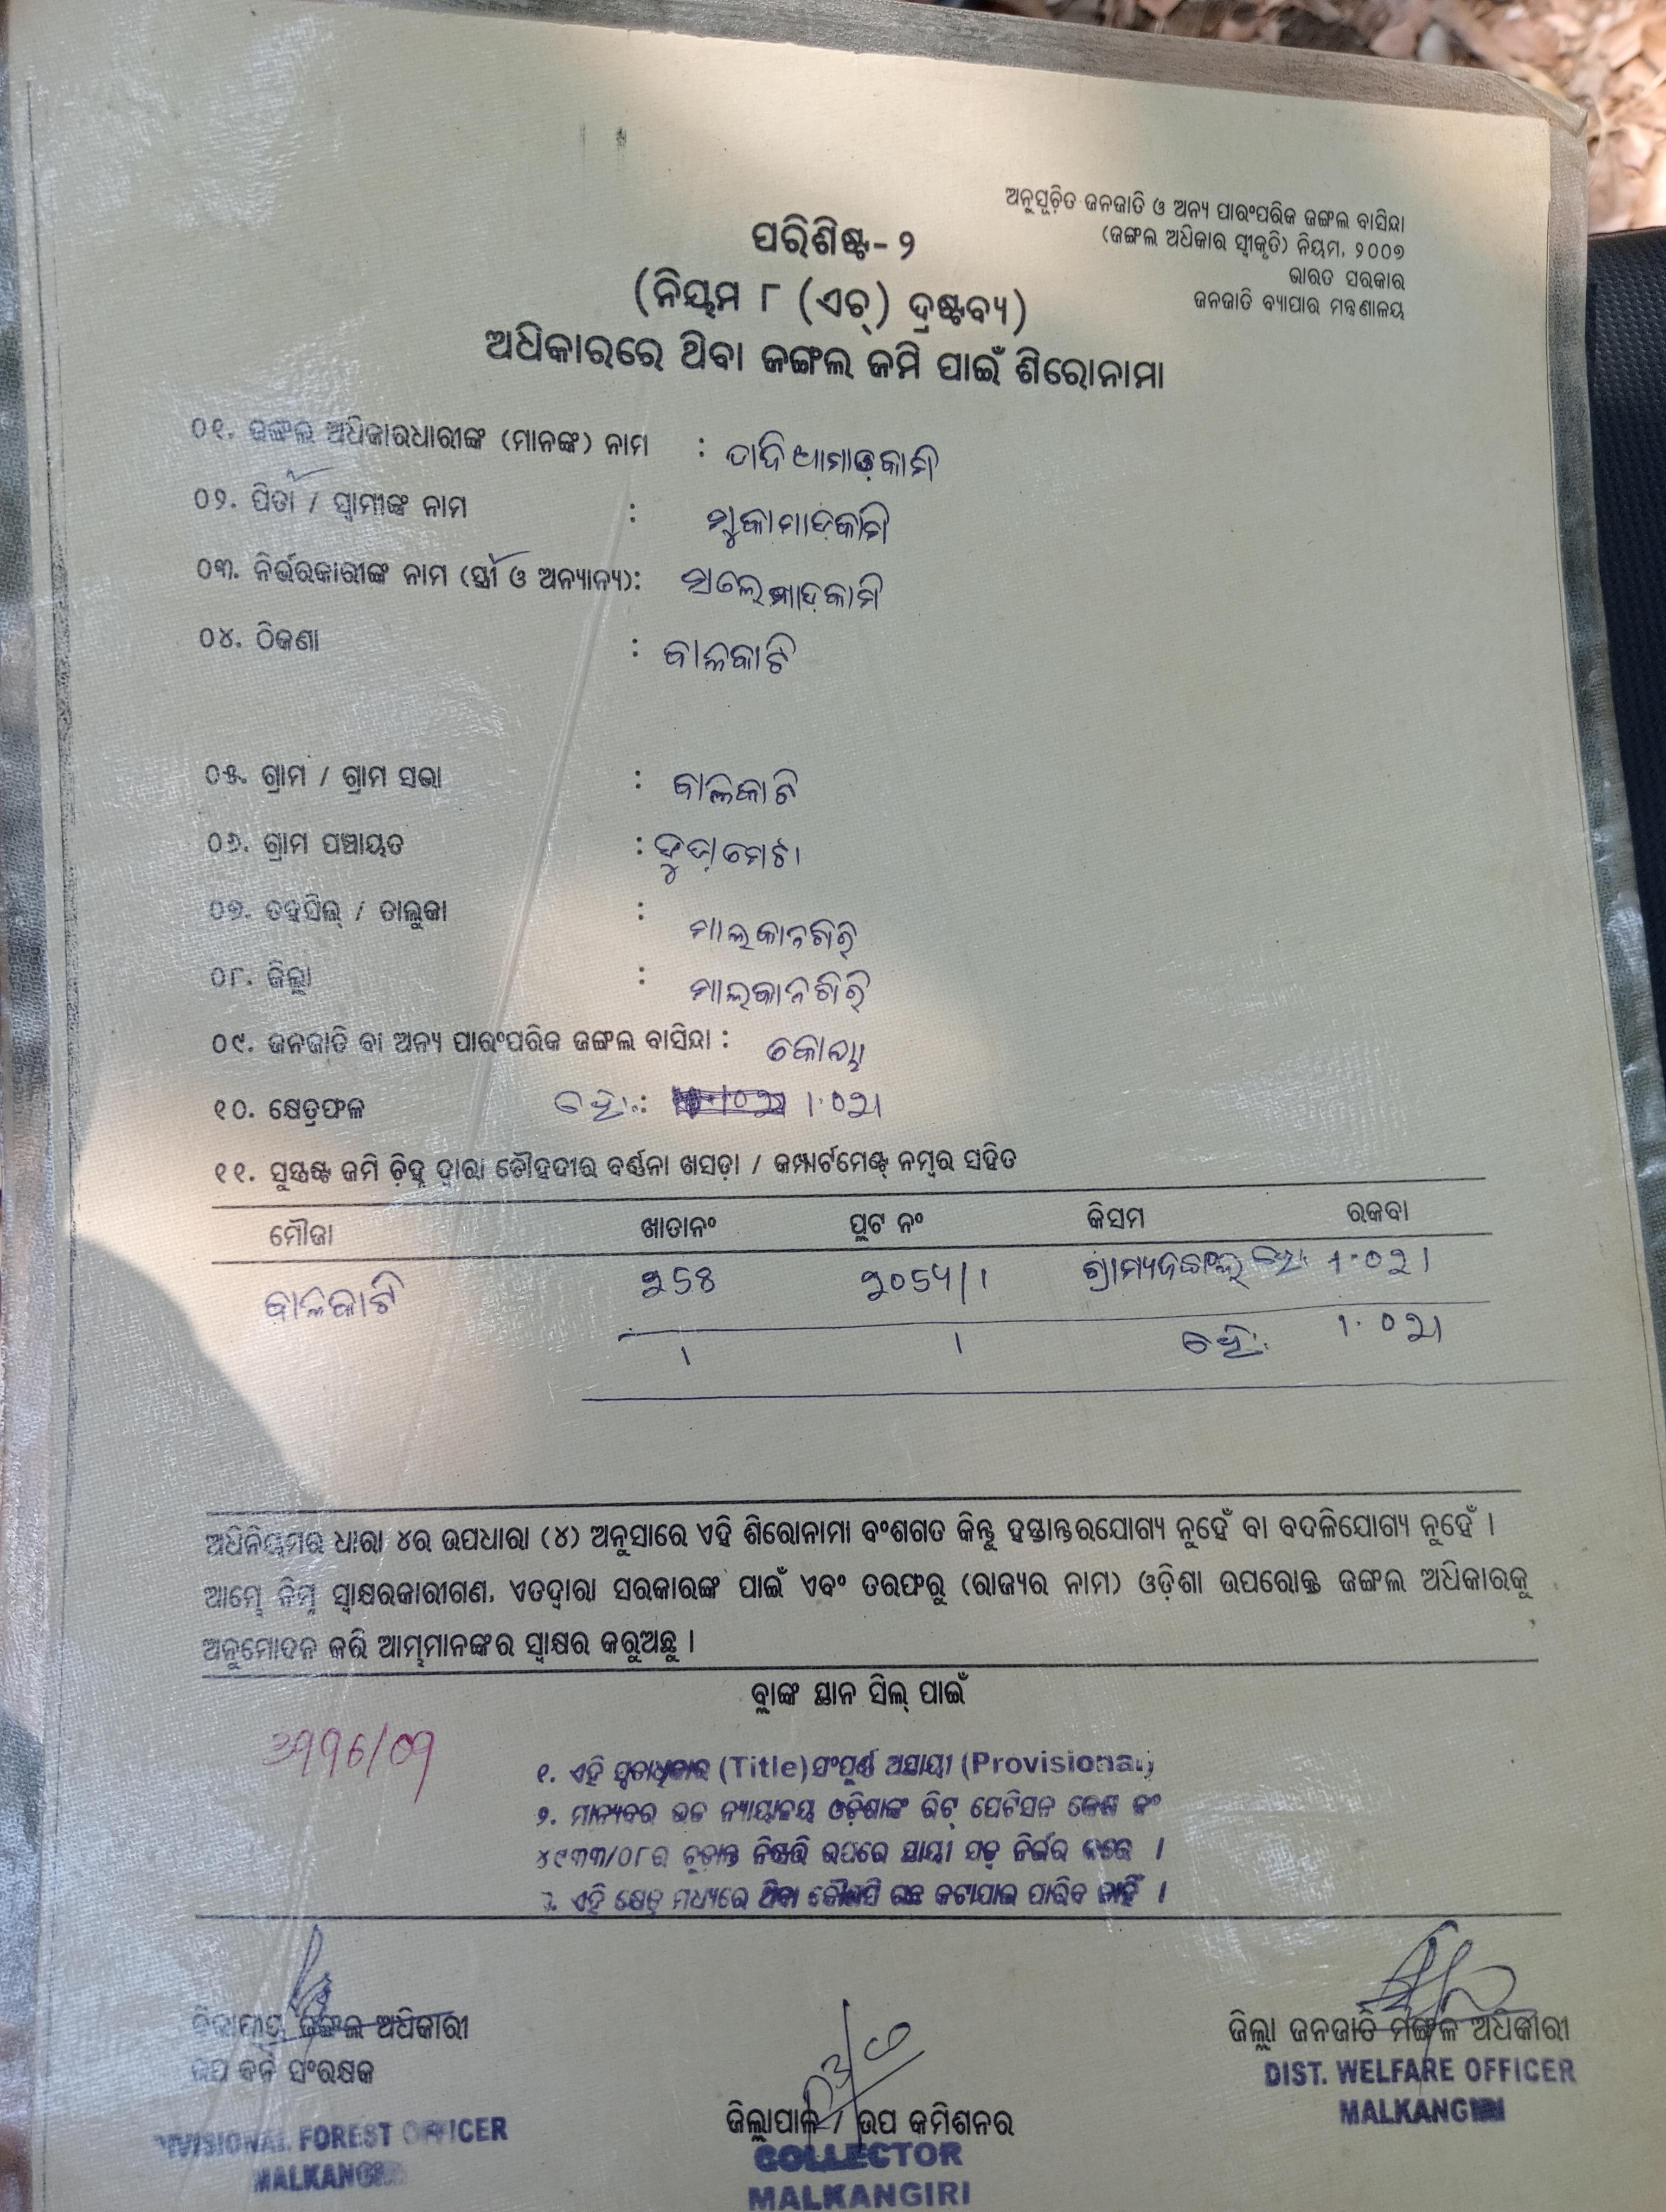 ଅନୁସୂଚିତ ଜନଜାତି ଓ ଅନ୍ୟ ପାରଂପରିକ ଜଙ୍ଗଲ ବାସିନ୍ଦା
(ଜଙ୍ଗଲ ଅଧିକାର ସ୍ୱୀକୃତି) ନିୟମ, ୨୦୦୭
ଭାରତ ସରକାର
ଜନଜାତି ବ୍ୟାପାର ମନ୍ତ୍ରଣାଳୟ
ପରିଶିଷ୍ଟ-୨
(ନିୟମ ୮ (ଏଚ୍) ଦ୍ରଷ୍ଟବ୍ୟ)
ଅଧିକାରରେ ଥିବା ଜଙ୍ଗଲ ଜମି ପାଇଁ ଶିରୋନାମା
୦୧. ଜଙ୍ଗଲ ଅଧିକାରଧାରୀଙ୍କ (ମାନଙ୍କ) ନାମ :
୦୨. ପିତା / ସ୍ୱାମୀଙ୍କ ନାମ :
୦୩. ନିର୍ଭରକାରୀଙ୍କ ନାମ (ସ୍ତ୍ରୀ ଓ ଅନ୍ୟାନ୍ୟ):
୦୪. ଠିକଣା : ବାଳକାଟି
୦୫. ଗ୍ରାମ / ଗ୍ରାମ ସଭା : ବାଳକାଟି
୦୬. ଗ୍ରାମ ପଞ୍ଚାୟତ :
୦୭. ତହସିଲ୍ / ତାଲୁକା : ମାଲକାନଗିରି
୦୮. ଜିଲ୍ଲା : ମାଲକାନଗିରି
୦୯. ଜନଜାତି ବା ଅନ୍ୟ ପାରଂପରିକ ଜଙ୍ଗଲ ବାସିନ୍ଦା : କୋୟା
୧୦. କ୍ଷେତ୍ରଫଳ ହେ: : ୧.୦୨୧
୧୧. ସୁସ୍ପଷ୍ଟ ଜମି ଚିହ୍ନ ଦ୍ୱାରା ଚୌହଦୀର ବର୍ଣ୍ଣନା ଖସଡ଼ା / କମ୍ପାର୍ଟମେଣ୍ଟ୍ ନମ୍ବର ସହିତ
ମୌଜା ଖାତାନଂ ପ୍ଲଟ ନଂ କିସମ ରକବା
ବାଳକାଟି ଗ୍ରାମ୍ୟଜଙ୍ଗଲ ହେ: ୧.୦୨୧
୧ ୧ ହେ: ୧.୦୨୧
ଅଧିନିୟମର ଧାରା ୪ର ଉପଧାରା (୪) ଅନୁସାରେ ଏହି ଶିରୋନାମା ବଂଶଗତ କିନ୍ତୁ ହସ୍ତାନ୍ତରଯୋଗ୍ୟ ନୁହେଁ ବା ବଦଳିଯୋଗ୍ୟ ନୁହେଁ ।
ଆମ୍ଭେ ନିମ୍ନ ସ୍ୱାକ୍ଷରକାରୀଗଣ, ଏତଦ୍ୱାରା ସରକାରଙ୍କ ପାଇଁ ଏବଂ ତରଫରୁ (ରାଜ୍ୟର ନାମ) ଓଡ଼ିଶା ଉପରୋକ୍ତ ଜଙ୍ଗଲ ଅଧିକାରକୁ
ଅନୁମୋଦନ କରି ଆମ୍ଭମାନଙ୍କର ସ୍ୱାକ୍ଷର କରୁଅଛୁ ।
ବ୍ଲାଙ୍କ ସ୍ଥାନ ସିଲ୍ ପାଇଁ
୧. ଏହି ସ୍ୱତ୍ୱାଧିକାର (Title) ସଂପୂର୍ଣ୍ଣ ଅସ୍ଥାୟୀ (Provisional)
୨. ମାନ୍ୟବର ଉଚ୍ଚ ନ୍ୟାୟାଳୟ ଓଡ଼ିଶାଙ୍କ ରିଟ୍ ପେଟିସନ କେଶ ନଂ
୪୯୩୩/୦୮ର ଚୂଡ଼ାନ୍ତ ନିଷ୍ପତ୍ତି ଉପରେ ସ୍ଥାୟୀ ସତ୍ୱ ନିର୍ଭର କରେ ।
୩. ଏହି କ୍ଷେତ୍ର ମଧ୍ୟରେ ଥିବା କୌଣସି ଗଛ କଟାଯାଇ ପାରିବ ନାହିଁ ।
ବିଭାଗୀୟ ଜଙ୍ଗଲ ଅଧିକାରୀ
ଉପ ବନ ସଂରକ୍ଷକ
DIVISIONAL FOREST OFFICER
MALKANGIRI
ଜିଲ୍ଲାପାଳ / ଉପ କମିଶନର
COLLECTOR
MALKANGIRI
ଜିଲ୍ଲା ଜନଜାତି ମଙ୍ଗଳ ଅଧିକାରୀ
DIST. WELFARE OFFICER
MALKANGIRI